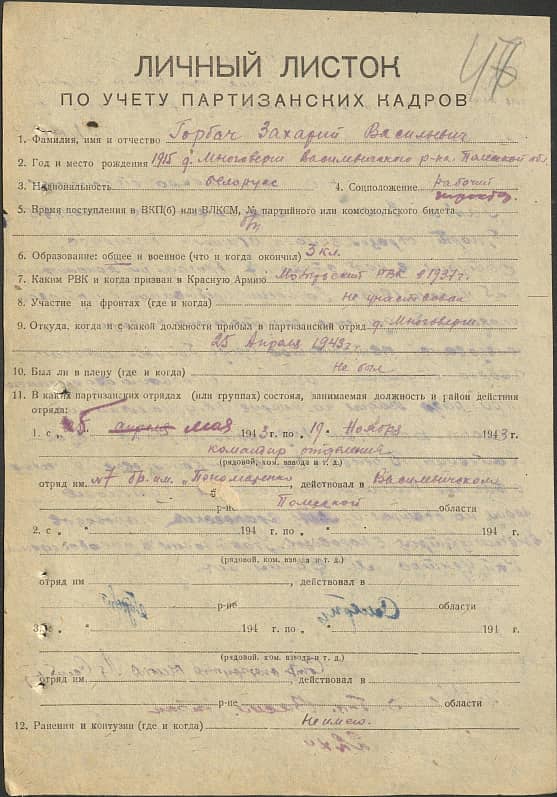 476
ЛИЧНЫЙ ЛИСТОК
ПО УЧЕТУ ПАРТИЗАНСКИХ КАДРОВ
1. Фамилия, имя и отчество Горбач Захарий Васильевич
2. Год и место рождения 1915 д. Многоверши Василевичского р-на Полесской обл.
3. Национальность белорус 4. Соцположение рабочий
5. Время поступления в ВКП(б) или ВЛКСМ, № партийного или комсомольского билета
б/п
6. Образование: общее и военное (что и когда окончил) 3 кл.
7. Каким РВК и когда призван в Красную Армию РВК в 1937 г.
8. Участие на фронтах (где и когда) не участвовал
9. Откуда, когда и с какой должности прибыл в партизанский отряд д. Многоверши
25 Апреля 1943 г.
10. Был ли в плену (где и когда) Не был
11. В каких партизанских отрядах (или группах) состоял, занимаемая должность и район действия
отряда:
1. с „ 25 апреля мая 1943 г. по „ 19 „ Ноября 1943 г.
командир отделения
(рядовой, ком. взвода и т. д.)
отряд им. №7 бр. им. „Пономаренко", действовал в Василевичском
р-не Полесской
2. с „ „ 194 г. по „ „ 194 г.
(рядовой, ком. взвода и т. д.)
отряд им , действовал в
р-не области
3. „ „ 194 г. по „ „ 194 г.
(рядовой, ком. взвода и т. д.)
отряд им. , действовал в
р-не области
12. Ранения и контузии (где и когда) Не имею.